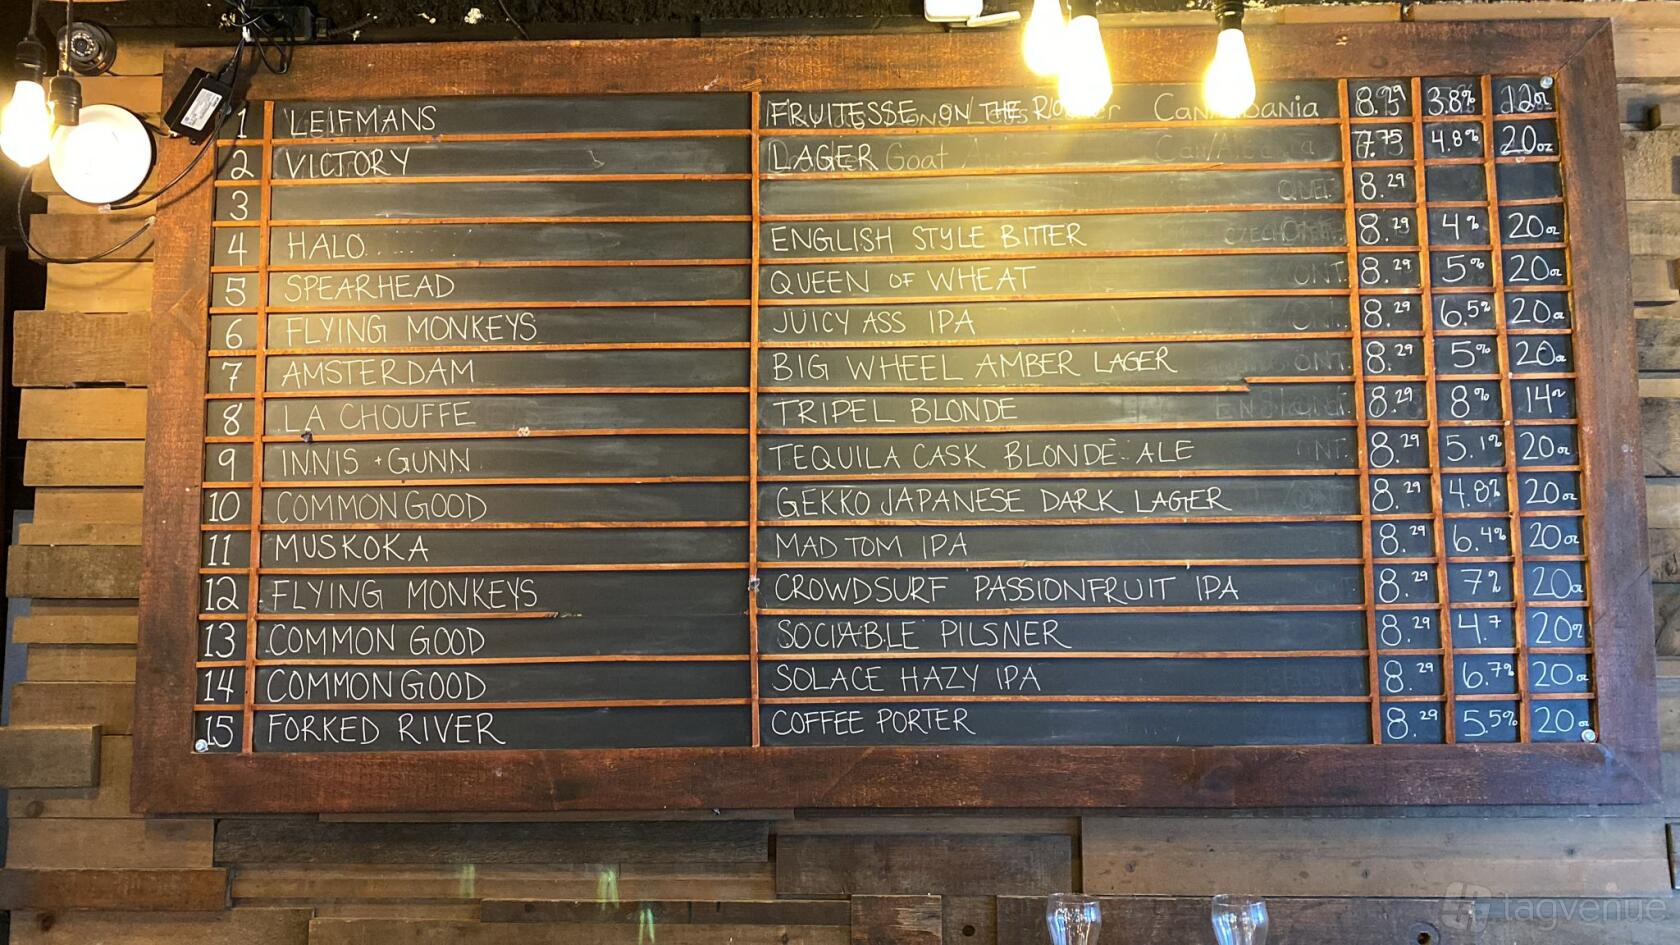 1 LEIFMANS FRUITESSE ON THE 3.8% 12oz
2 VICTORY LAGER Goat 7.75 4.8% 20oz
3 QUE. 8.29
4 HALO ENGLISH STYLE BITTER 8.29 4% 20oz
5 SPEARHEAD QUEEN OF WHEAT ONT. 8.29 5% 20oz
6 FLYING MONKEYS JUICY ASS IPA 8.29 6.5% 20oz
7 AMSTERDAM BIG WHEEL AMBER LAGER ONT. 8.29 5% 20oz
8 LA CHOUFFE TRIPEL BLONDE 8.29 8% 14oz
9 INNIS + GUNN TEQUILA CASK BLONDE ALE ONT. 8.29 5.1% 20oz
10 COMMON GOOD GEKKO JAPANESE DARK LAGER 8.29 4.8% 20oz
11 MUSKOKA MAD TOM IPA 8.29 6.4% 20oz
12 FLYING MONKEYS CROWDSURF PASSIONFRUIT IPA 8.29 7% 20oz
13 COMMON GOOD SOCIABLE PILSNER 8.29 4.7 20oz
14 COMMON GOOD SOLACE HAZY IPA 8.29 6.7% 20oz
15 FORKED RIVER COFFEE PORTER 8.29 5.5% 20oz
tagvenue